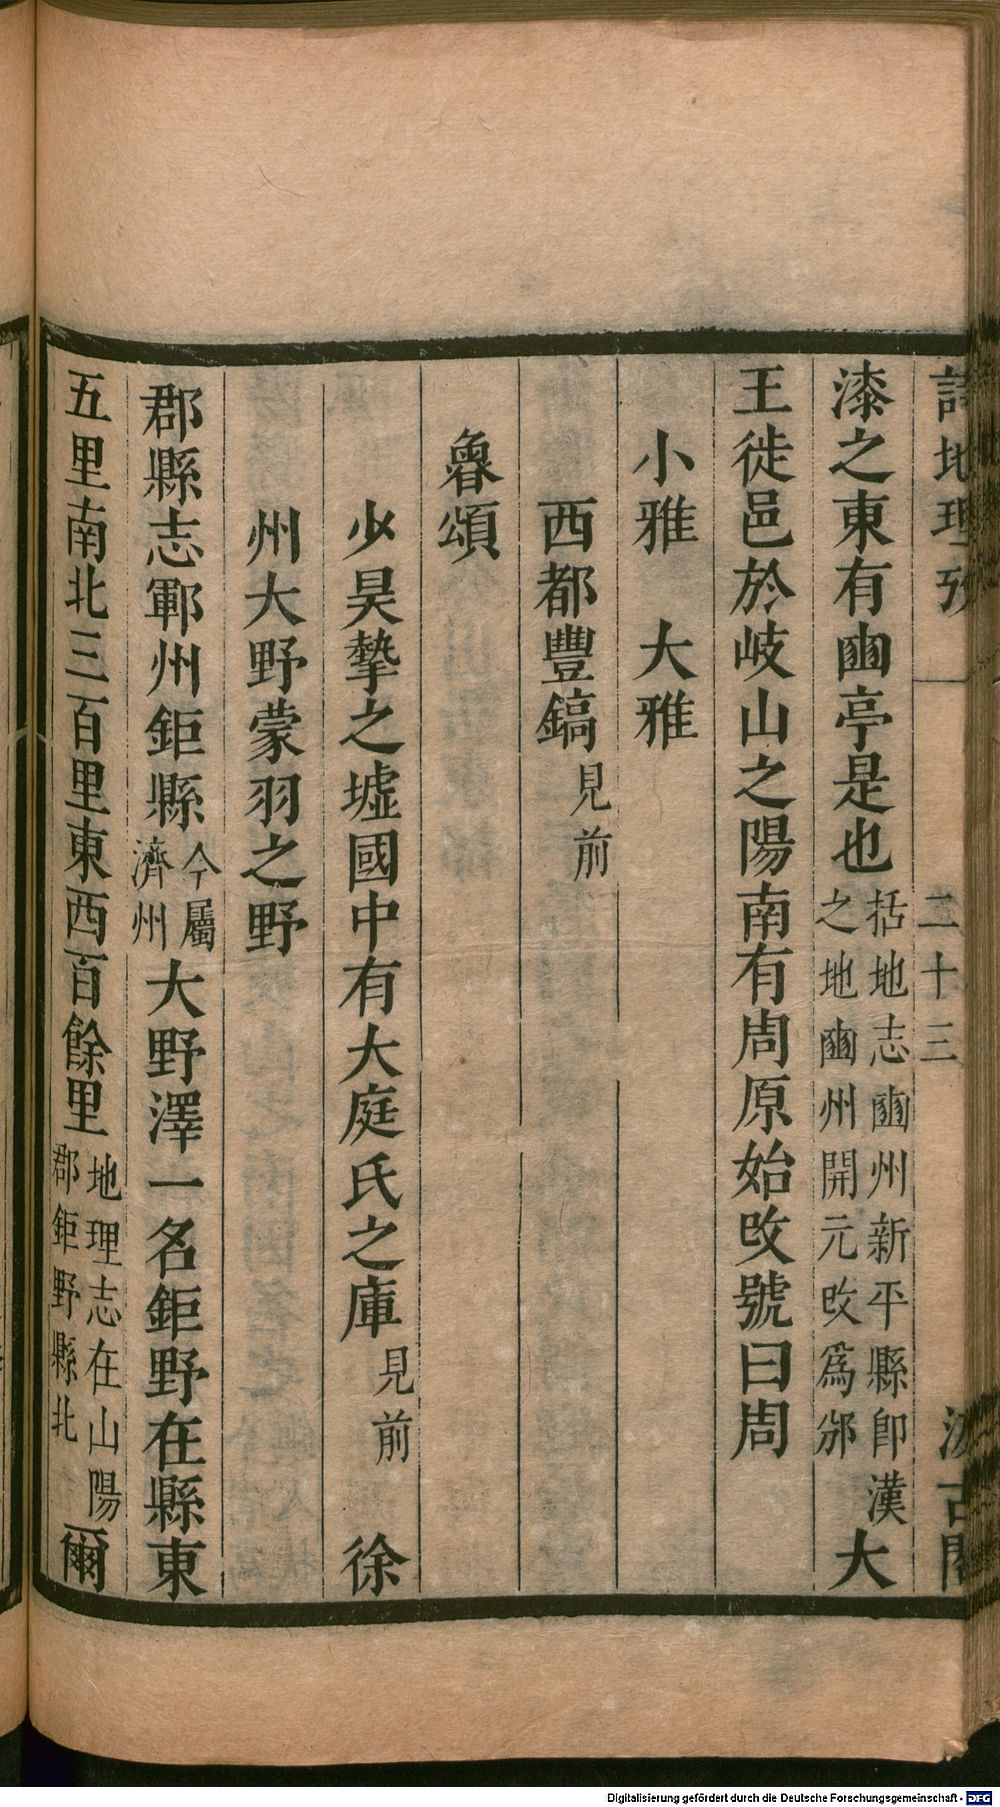 詩地理攷 二十三 汲古閣
漆之東有豳亭是也括地志豳州新平縣卽漢之地豳州開元改爲邠大
王徙邑於岐山之陽南有周原始改號曰周
小雅 大雅
西都豐鎬見前
魯頌
少昊摯之墟國中有大庭氏之庫見前 徐
州大野蒙羽之野
郡縣志鄆州鉅縣今屬濟州大野澤一名鉅野在縣東
五里南北三百里東西百餘里地理志在山陽郡鉅野縣北爾
Digitalisierung gefördert durch die Deutsche Forschungsgemeinschaft - DFG